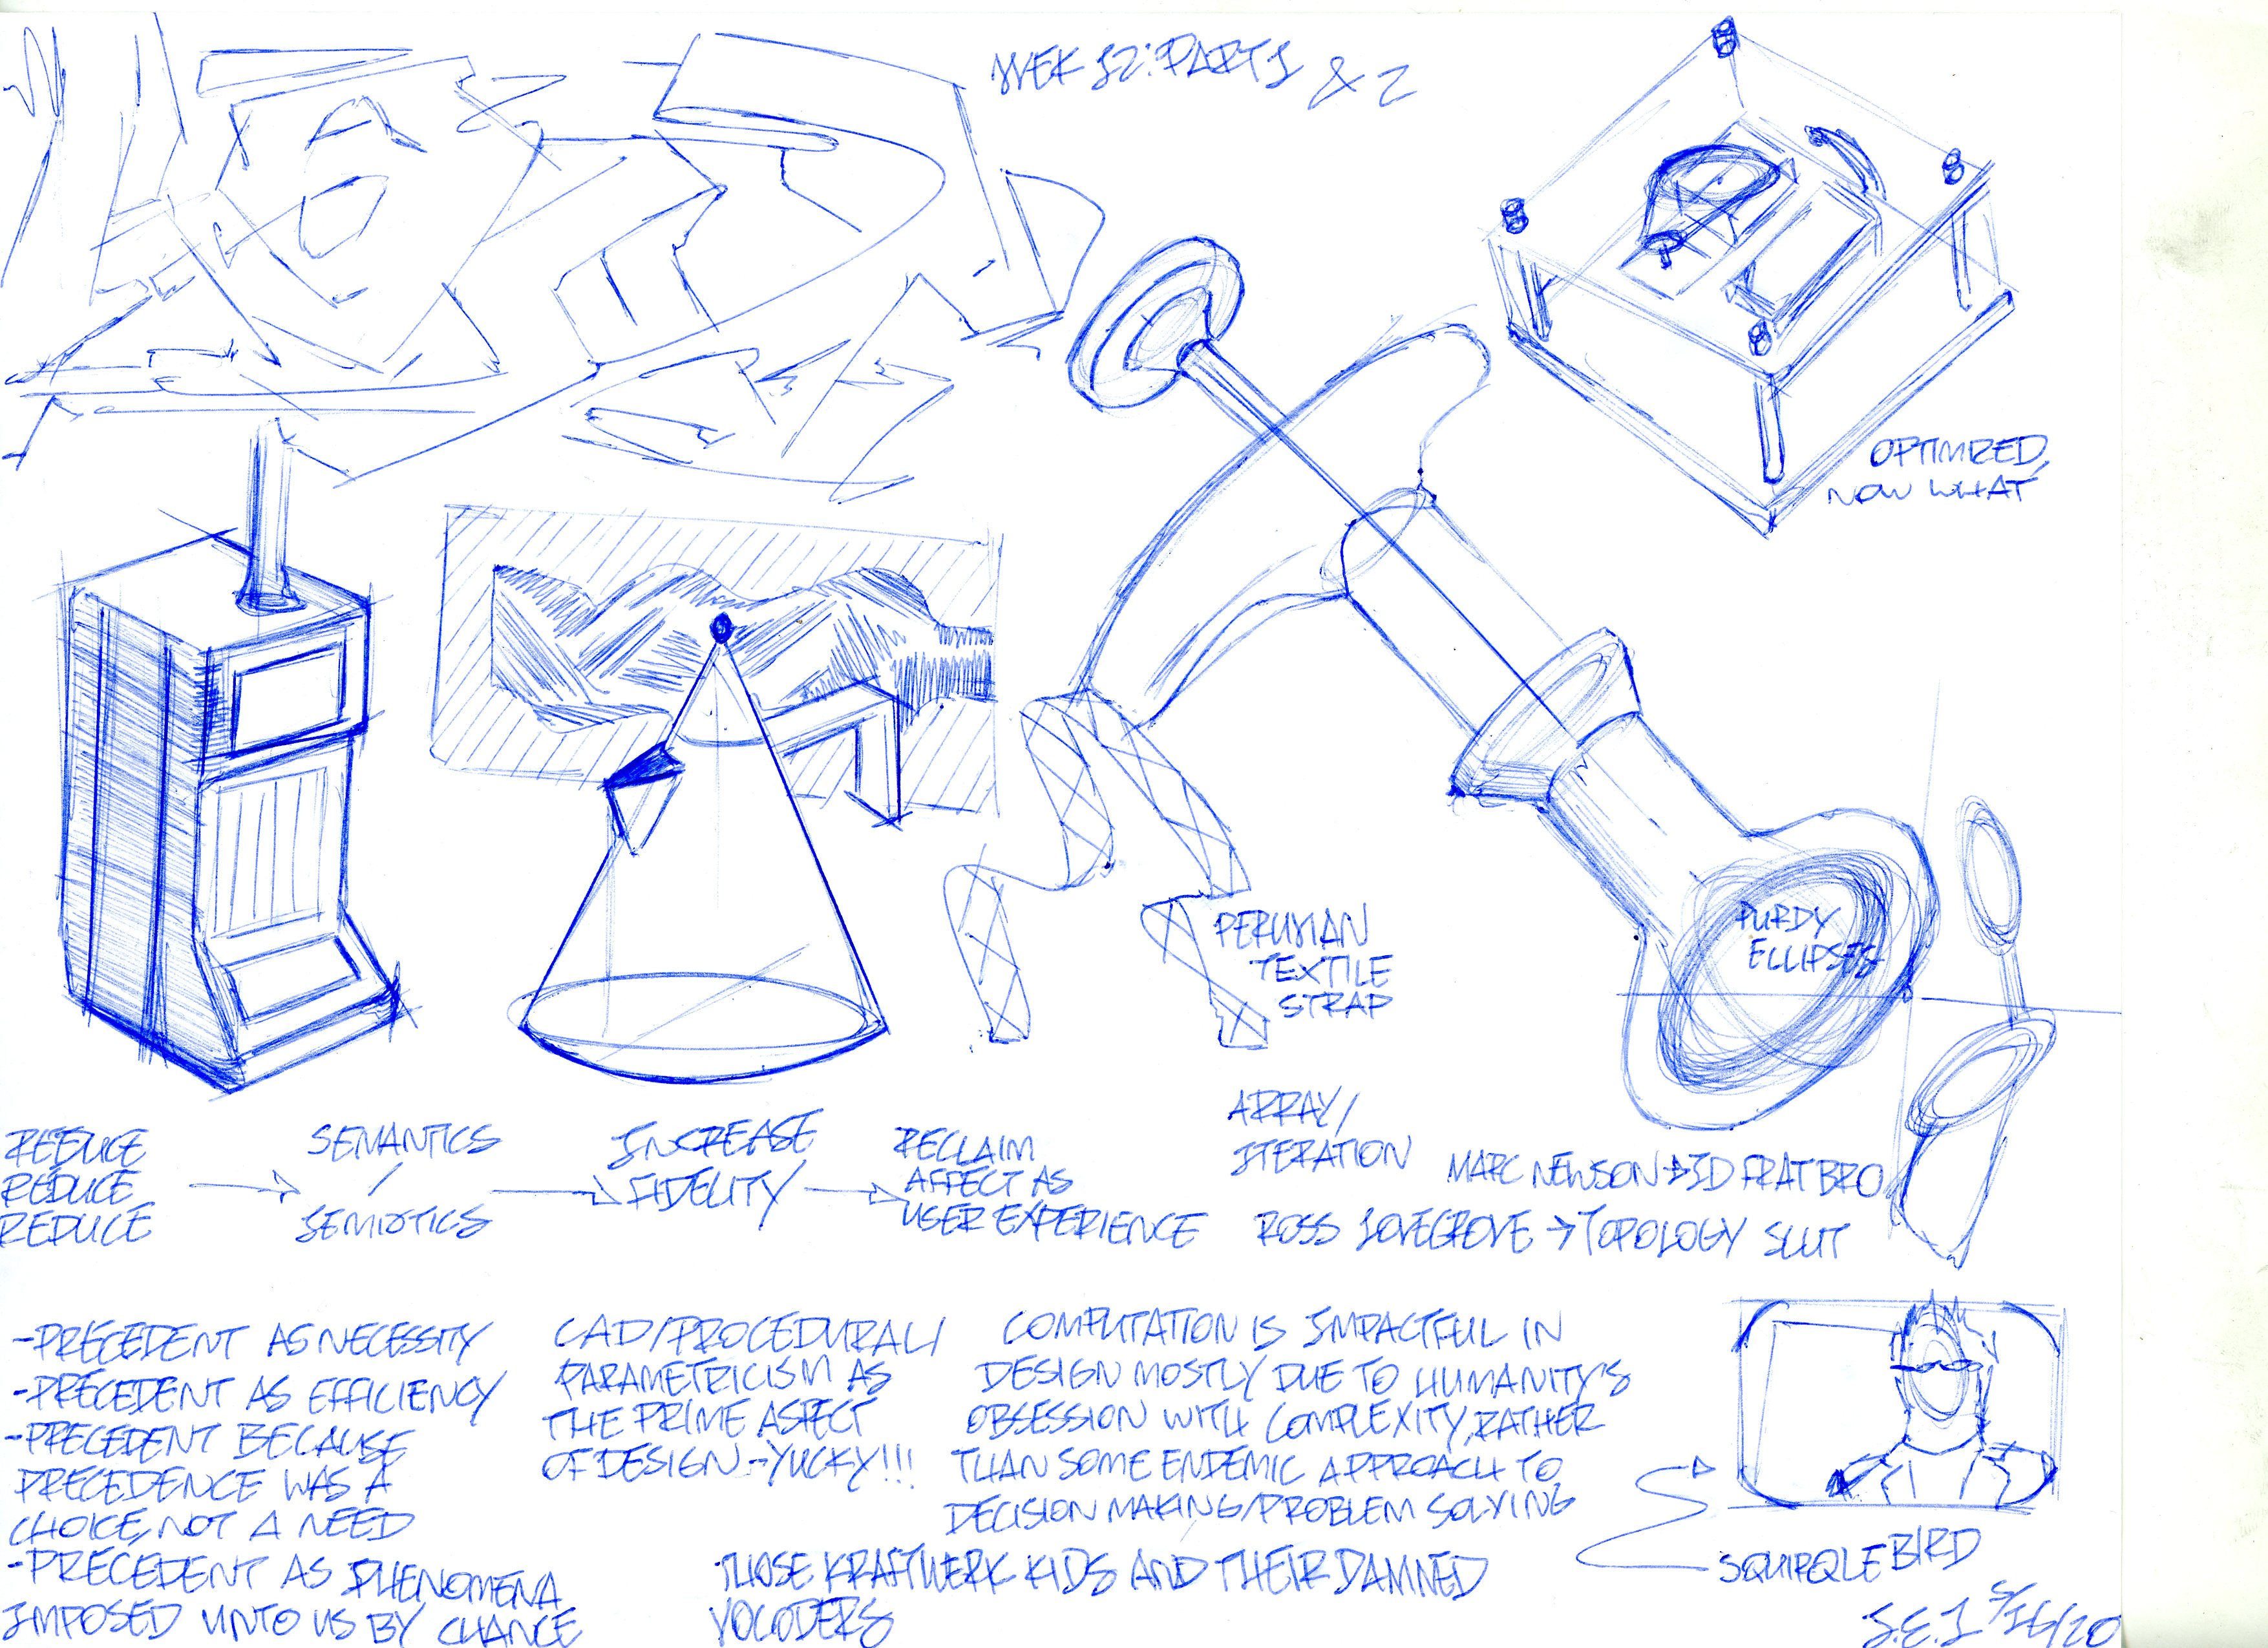 WEEK 12: PART 1 & 2
OPTIMIZED,
NOW WHAT
PERUVIAN
TEXTILE
STRAP
PURDY
ELLIPSES
REDUCE
REDUCE
REDUCE
SEMANTICS
/
SEMIOTICS
INCREASE
FIDELITY
RECLAIM
AFFECT AS
USER EXPERIENCE
ARRAY/
ITERATION
MARC NEWSON → 3D FRAT BRO
ROSS LOVEGROVE → TOPOLOGY SLUT
- PRECEDENT AS NECESSITY
- PRECEDENT AS EFFICIENCY
- PRECEDENT BECAUSE
PRECEDENCE WAS A
CHOICE, NOT A NEED
- PRECEDENT AS PHENOMENA
IMPOSED UNTO US BY CHANCE
CAD/PROCEDURAL/
PARAMETRICISM AS
THE PRIME ASPECT
OF DESIGN -- YUCKY!!!
COMPUTATION IS IMPACTFUL IN
DESIGN MOSTLY DUE TO HUMANITY'S
OBSESSION WITH COMPLEXITY, RATHER
THAN SOME ENDEMIC APPROACH TO
DECISION MAKING/PROBLEM SOLVING
THOSE KRAFTWERK KIDS AND THEIR DAMNED
VOCODERS
SQUIRQLE BIRD
S.E.J 5/16/20